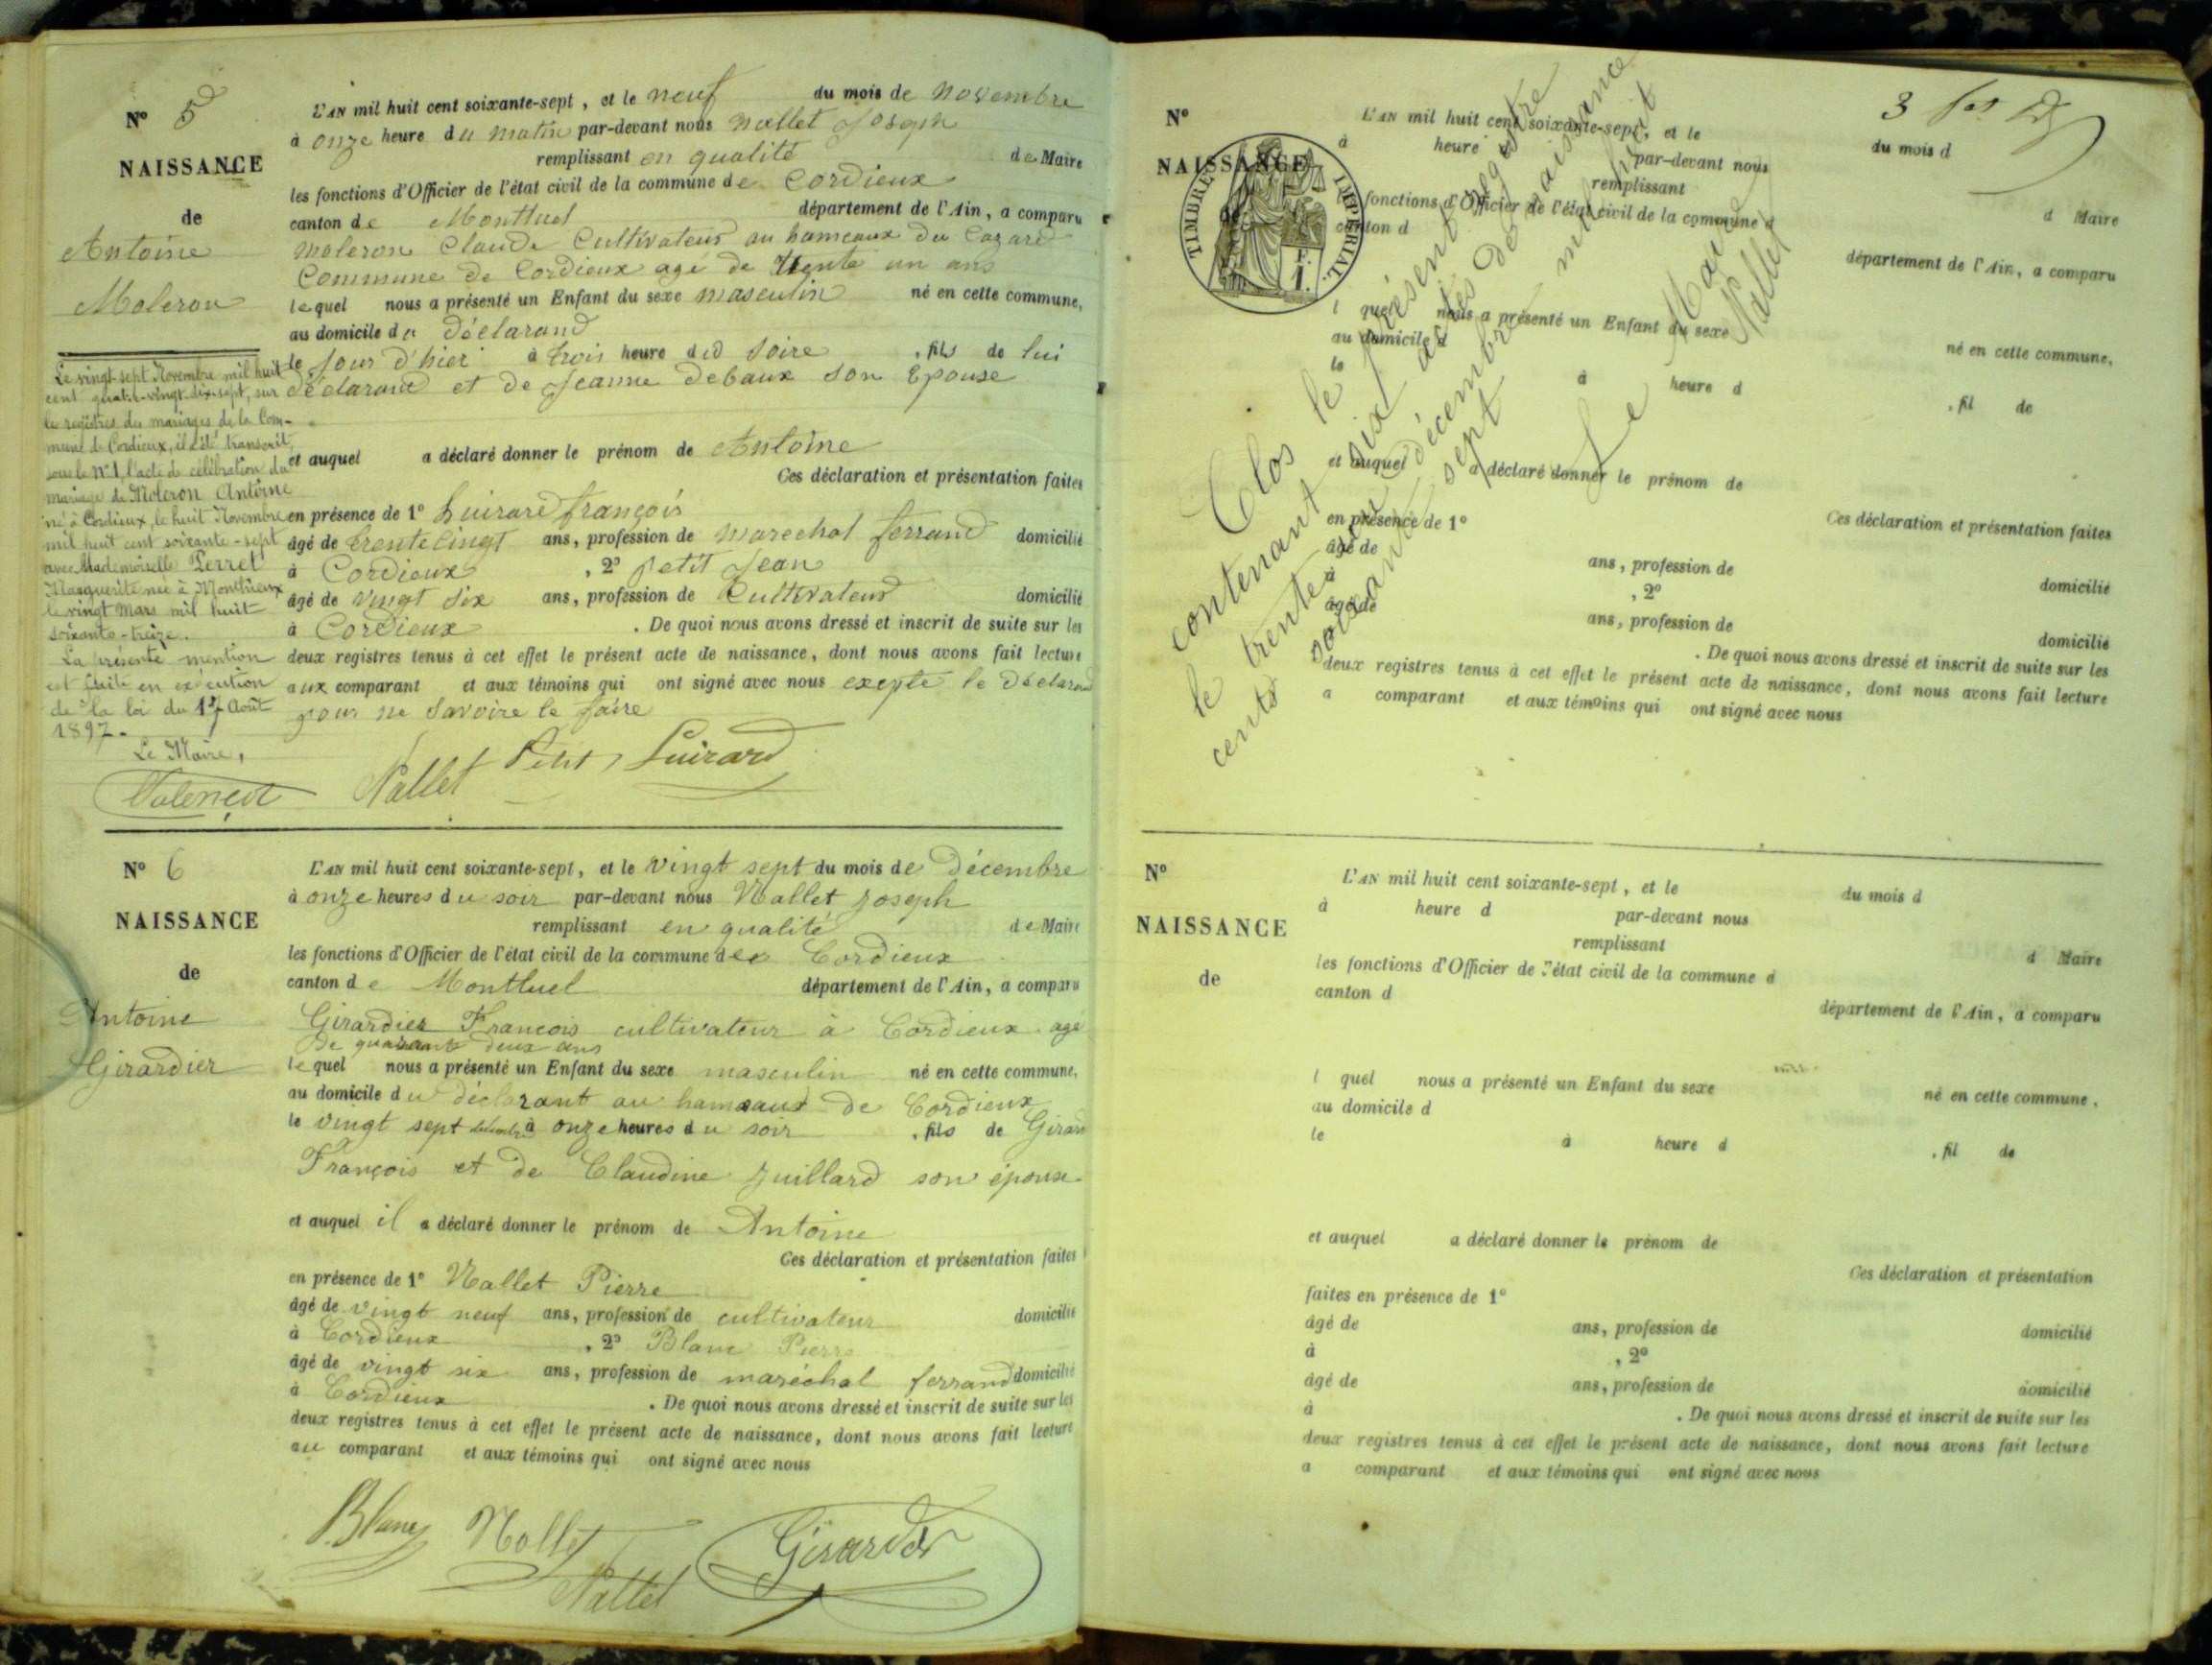 N° 5
NAISSANCE
de
Antoine
Moleron
L'AN mil huit cent soixante-sept, et le neuf du mois de novembre
à onze heure du matin par-devant nous Nallet Joseph
remplissant en qualité de Maire
les fonctions d'Officier de l'état civil de la commune de Cordieux
canton de Montluel département de l'Ain, a comparu
moleron Claude Cultivateur au hameaux du
Commune de Cordieux agé de trente un ans
lequel nous a présenté un Enfant du sexe masculin né en cette commune,
au domicile du déclarand
le jour d'hier à trois heure du soire , fils de lui
déclarant et de Jeanne Debaux son Epouse
et auquel a déclaré donner le prénom de Antoine
Ces déclaration et présentation faites
en présence de 1° Luirard françois
âgé de trente cinqt ans, profession de marechal ferrand domicilié
à Cordieux , 2° petit Jean
âgé de vingt six ans, profession de Cultivateur domicilié
à Cordieux . De quoi nous avons dressé et inscrit de suite sur les
deux registres tenus à cet effet le présent acte de naissance, dont nous avons fait lecture
aux comparant et aux témoins qui ont signé avec nous exepté le déclarand
pour ne savoire le faire
Nallet Petit Luirard
Le vingt-sept Novembre mil huit
cent quatre-vingt-dix-sept, sur
le registres des mariages de la Com-
mune de Cordieux, il a été transcrit,
sous le N° 1, l'acte de célébration du
mariage de Moleron Antoine
né à Cordieux, le huit Novembre
mil huit cent soixante-sept
avec Mademoiselle Perret
Marguerite née à Monthieux
le vingt Mars mil huit
soixante-treize.
La présente mention
est faite en exécution
de la loi du 17 Août
1897.
Le Maire,
N° 6
NAISSANCE
de
Antoine
Girardier
L'AN mil huit cent soixante-sept, et le vingt sept du mois de Décembre
à onze heures du soir par-devant nous Nallet Joseph
remplissant en qualité de Maire
les fonctions d'Officier de l'état civil de la commune de Cordieux
canton de Montluel département de l'Ain, a comparu
Girardier François cultivateur à Cordieux agé
de quarante deux ans
lequel nous a présenté un Enfant du sexe masculin né en cette commune,
au domicile du déclarant au hameaux de Cordieux
le vingt sept à onze heures du soir , fils de
François et de Claudine Juillard son épouse
et auquel il a déclaré donner le prénom de Antoine
Ces déclaration et présentation faites
en présence de 1° Nallet Pierre
âgé de vingt neuf ans, profession de cultivateur domicilié
à Cordieux , 2° Blanc Pierre
âgé de vingt six ans, profession de maréchal ferrand domicilié
à Cordieux . De quoi nous avons dressé et inscrit de suite sur les
deux registres tenus à cet effet le présent acte de naissance, dont nous avons fait lecture
au comparant et aux témoins qui ont signé avec nous
Blanc Nallet Girardier
Nallet
3
N°
NAISSANCE
TIMBRE IMPERIAL.
L'AN mil huit cent soixante-sept, et le du mois d
à heure par-devant nous
remplissant d Maire
fonctions d'Officier de l'état civil de la commune d
canton d département de l'Ain, a comparu
l quel nous a présenté un Enfant du sexe né en cette commune,
au domicile d
le à heure d , fil de
et auquel a déclaré donner le prénom de
Ces déclaration et présentation faites
en présence de 1°
âgé de ans, profession de domicilié
à , 2°
âgé de ans, profession de domicilié
. De quoi nous avons dressé et inscrit de suite sur les
deux registres tenus à cet effet le présent acte de naissance, dont nous avons fait lecture
a comparant et aux témoins qui ont signé avec nous
Clos le présent registre
contenant six actes de naissance
le trente un décembre mil huit
cents soixante sept
Le Maire
Nallet
N°
NAISSANCE
de
L'AN mil huit cent soixante-sept, et le du mois d
à heure d par-devant nous
remplissant d Maire
les fonctions d'Officier de l'état civil de la commune d
canton d département de l'Ain, a comparu
l quel nous a présenté un Enfant du sexe né en cette commune,
au domicile d
le à heure d , fil de
et auquel a déclaré donner le prénom de
Ces déclaration et présentation
faites en présence de 1°
âgé de ans, profession de domicilié
à , 2°
âgé de ans, profession de domicilié
à . De quoi nous avons dressé et inscrit de suite sur les
deux registres tenus à cet effet le présent acte de naissance, dont nous avons fait lecture
a comparant et aux témoins qui ont signé avec nous